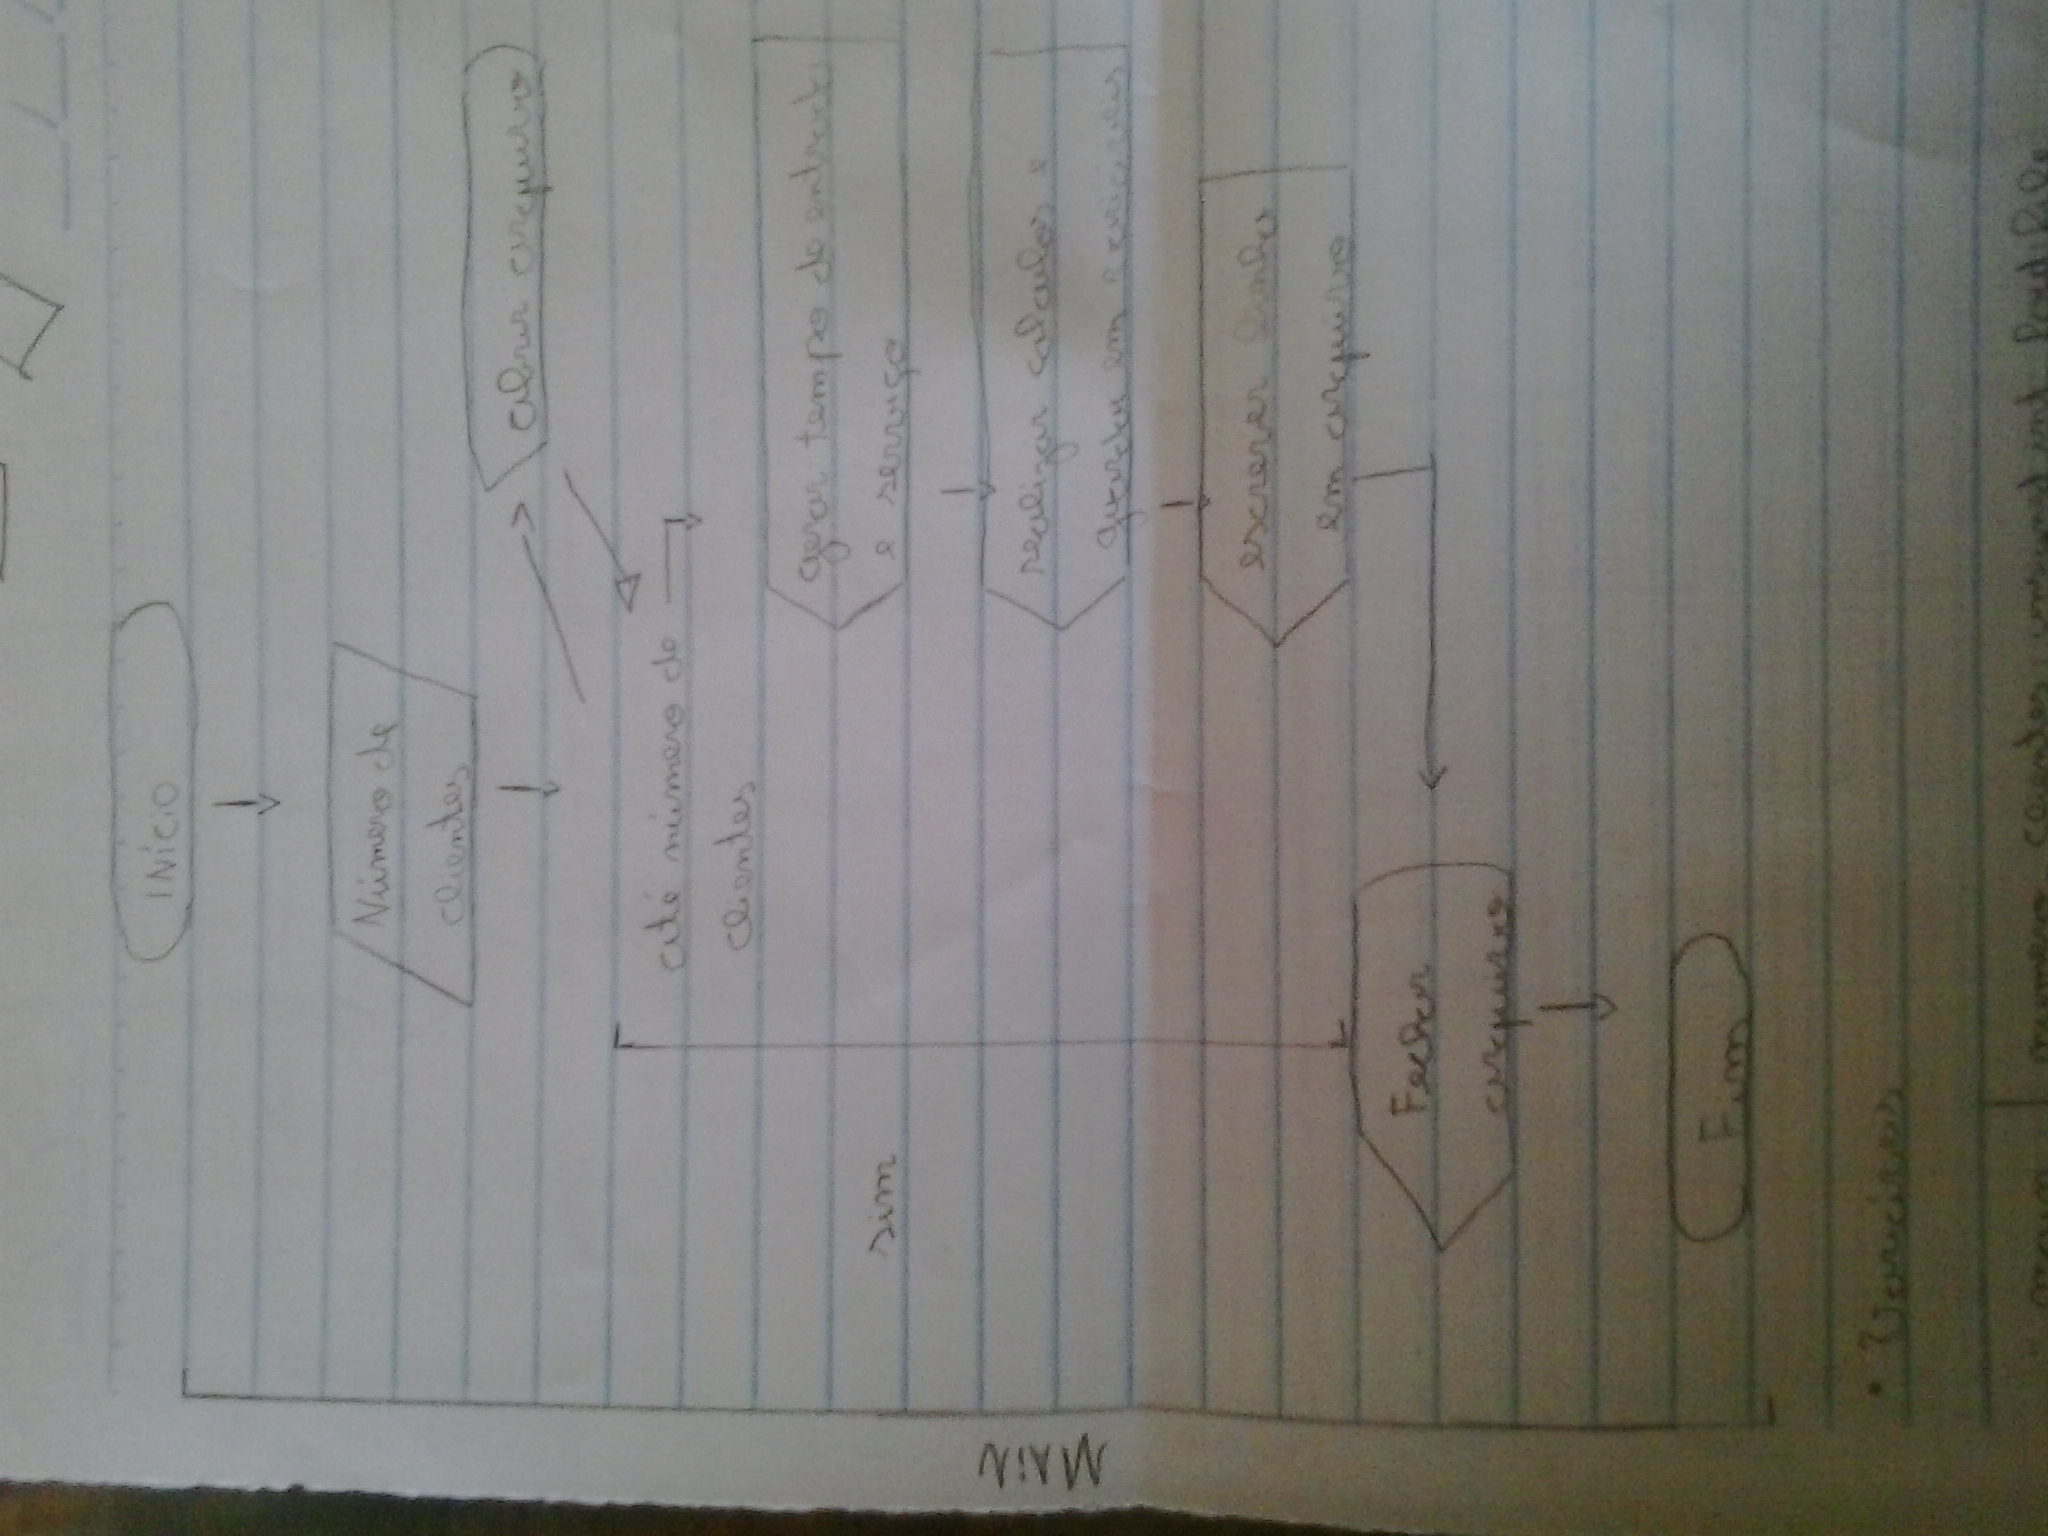 INÍCIO
Número de
clientes
abrir arquivo
até número de
clientes
gerar tempo de entrada
e serviço
realizar calculos e
guardar em variaveis
escrever linha
em arquivo
sim
Fechar
arquivo
Fim
MAIN
número clientes